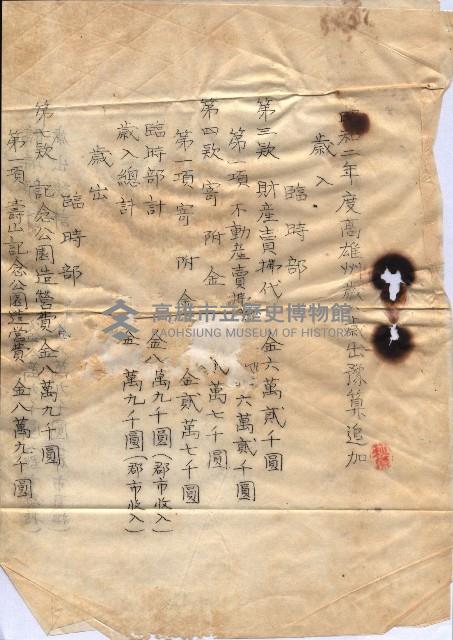 昭和二年度高雄州歲入歲出豫算追加
歲入
臨時部
第三款 財產賣拂代 金六萬貳千圓
第一項 不動產賣拂 六萬貳千圓
第四款 寄附金 貳萬七千圓
第一項 寄附金 金貳萬七千圓
臨時部計 金八萬九千圓(郡市收入)
歲入總計 金 萬九千圓(郡市收入)
歲出
臨時部
第七款 記念公園造營費 金八萬九千圓
第一項 壽山記念公園造營費 金八萬九千圓
高雄市立歷史博物館
KAOHSIUNG MUSEUM OF HISTORY